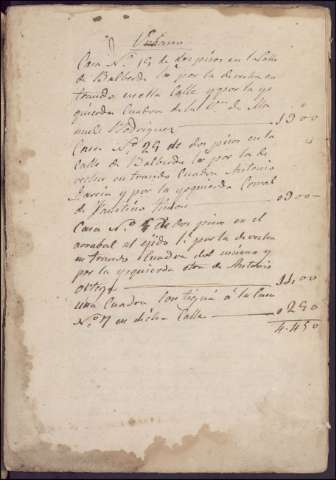 Urbano
Casa N.º 15 de dos pisos en la Calle
de Balberde l.ª por la derecha en
trando en ella Calle y por la yz
quierda Cuadra de la V.ª de Ma
nuel Rodriguez 1300
Casa N.º 29 de dos pisos en la
Calle de Balberde l.ª por la de
recha entrando Cuadra Antonio
Garcia y por la yzquierda Corral
de Faustino
Casa N.º 5 de dos pisos en el
arrabal al ejido l.ª por la derecha
entrando Cuadra del mismo y
por la yzquierda otra de Antonio
Ortiz 1100
una Cuadra Contigua á la Casa
N.º 7 en dicha Calle 0250
4.450